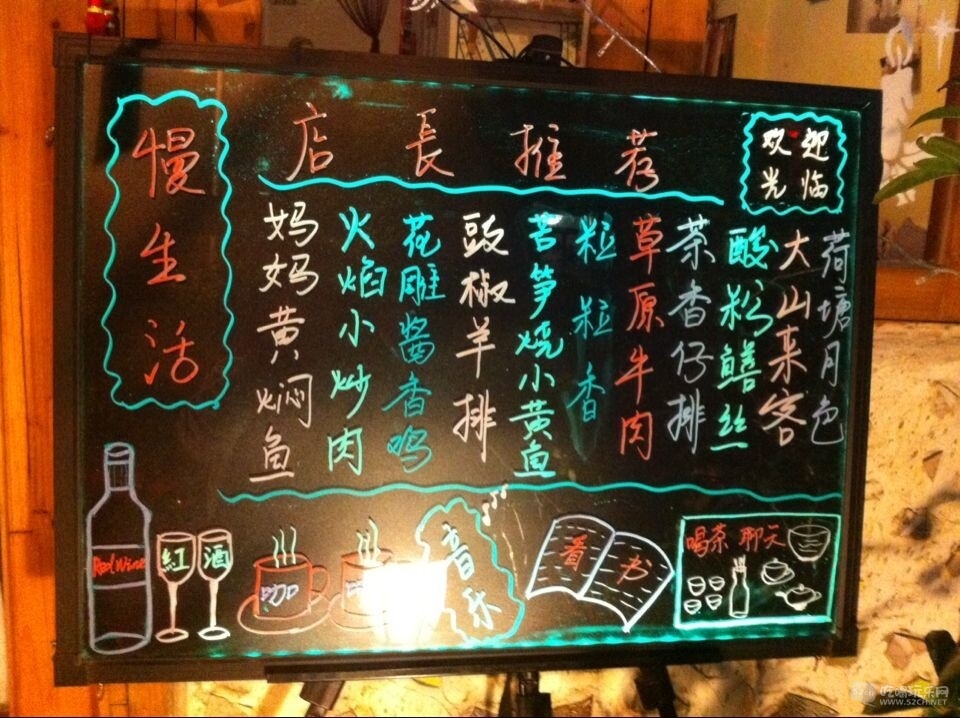 慢生活
店長推荐
欢迎
光临
妈妈黄焖鱼
火焰小炒肉
花雕酱香鸡
豉椒羊排
苦笋烧小黄鱼
粒粒香
草原牛肉
茶香仔排
酸粉鳝丝
大山来客
荷塘月色
Red Wine
紅酒
咖
音乐
看书
喝茶 聊天
吃喝玩乐网
WWW.52CH.NET